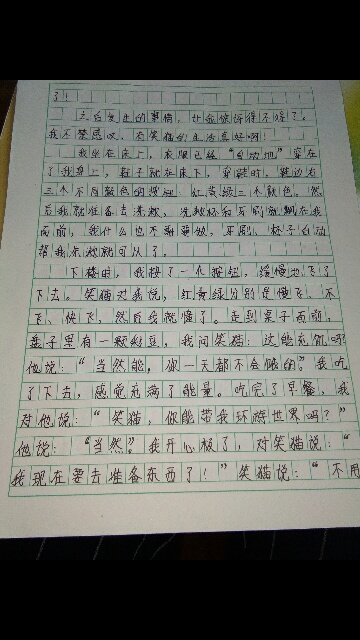 了！
之后发生的事情，让我惊讶得不得了。
我不禁感叹，有笑猫的生活真好啊！
我坐在床上，衣服已经“自动地”穿在
了我身上，鞋子就在床下，穿鞋时，鞋边有
三个不同颜色的按钮：红黄绿三个颜色。然
后我就准备去洗漱，洗漱杯和牙刷就飘在我
面前，我什么也不需要做，牙刷、杯子自动
帮我洗漱就可以了。
下楼时，我按了一个按钮，缓慢地飞了
下去。笑猫对我说，红黄绿分别是慢飞、不
飞、快飞，然后我就懂了。走到桌子面前，
盘子里有一颗豌豆，我问笑猫：这能充饥吗？
他说：“当然能，你一天都不会饿的。”我吃
了下去，感觉充满了能量。吃完了早餐，我
对他说：“笑猫，你能带我环游世界吗？”
他说：“当然”。我开心极了，对笑猫说：“
我现在要去准备东西了！”笑猫说：“不用